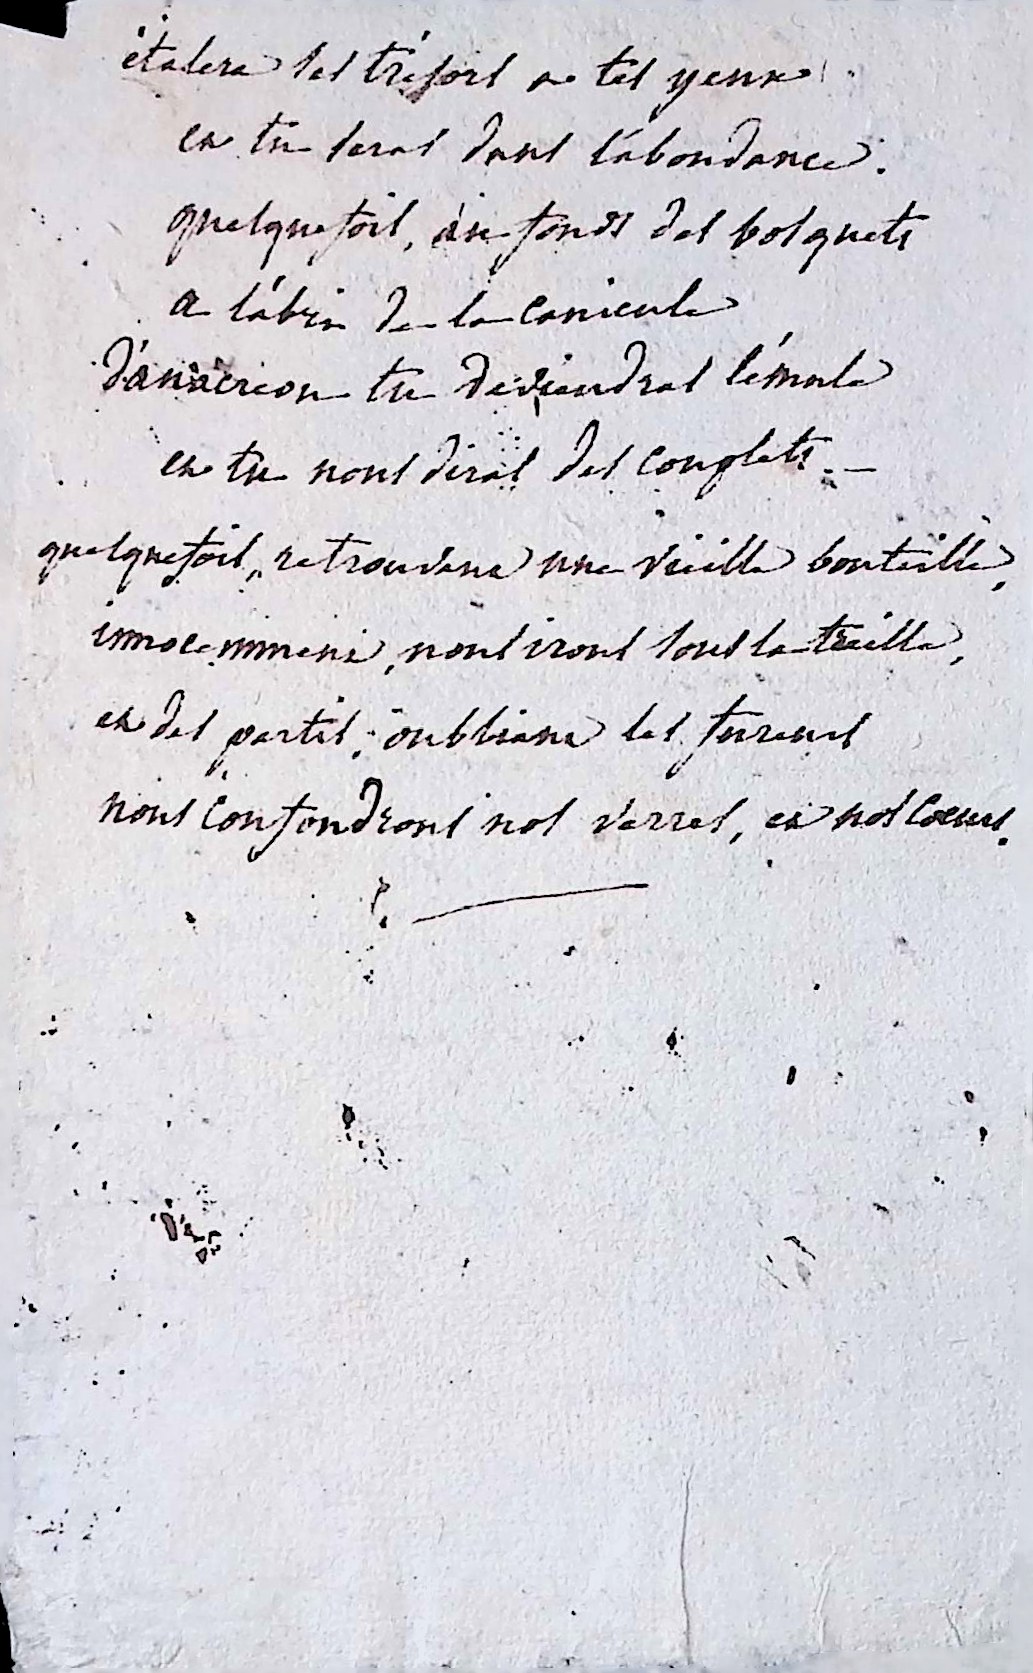 étalera ses trésors a tes yeux
et tu seras dans l'abondance.
quelquefois, au fonds des bosquets
a l'abri de la canicule
d'anacreon tu deviendras l'émule
et tu nous diras des couplets. —
quelquefois, retrouvant une vieille bouteille,
innocemment, nous irons sous la treille,
et des partis, oubliant les fureurs
nous confondrons nos verres, et nos coeurs.